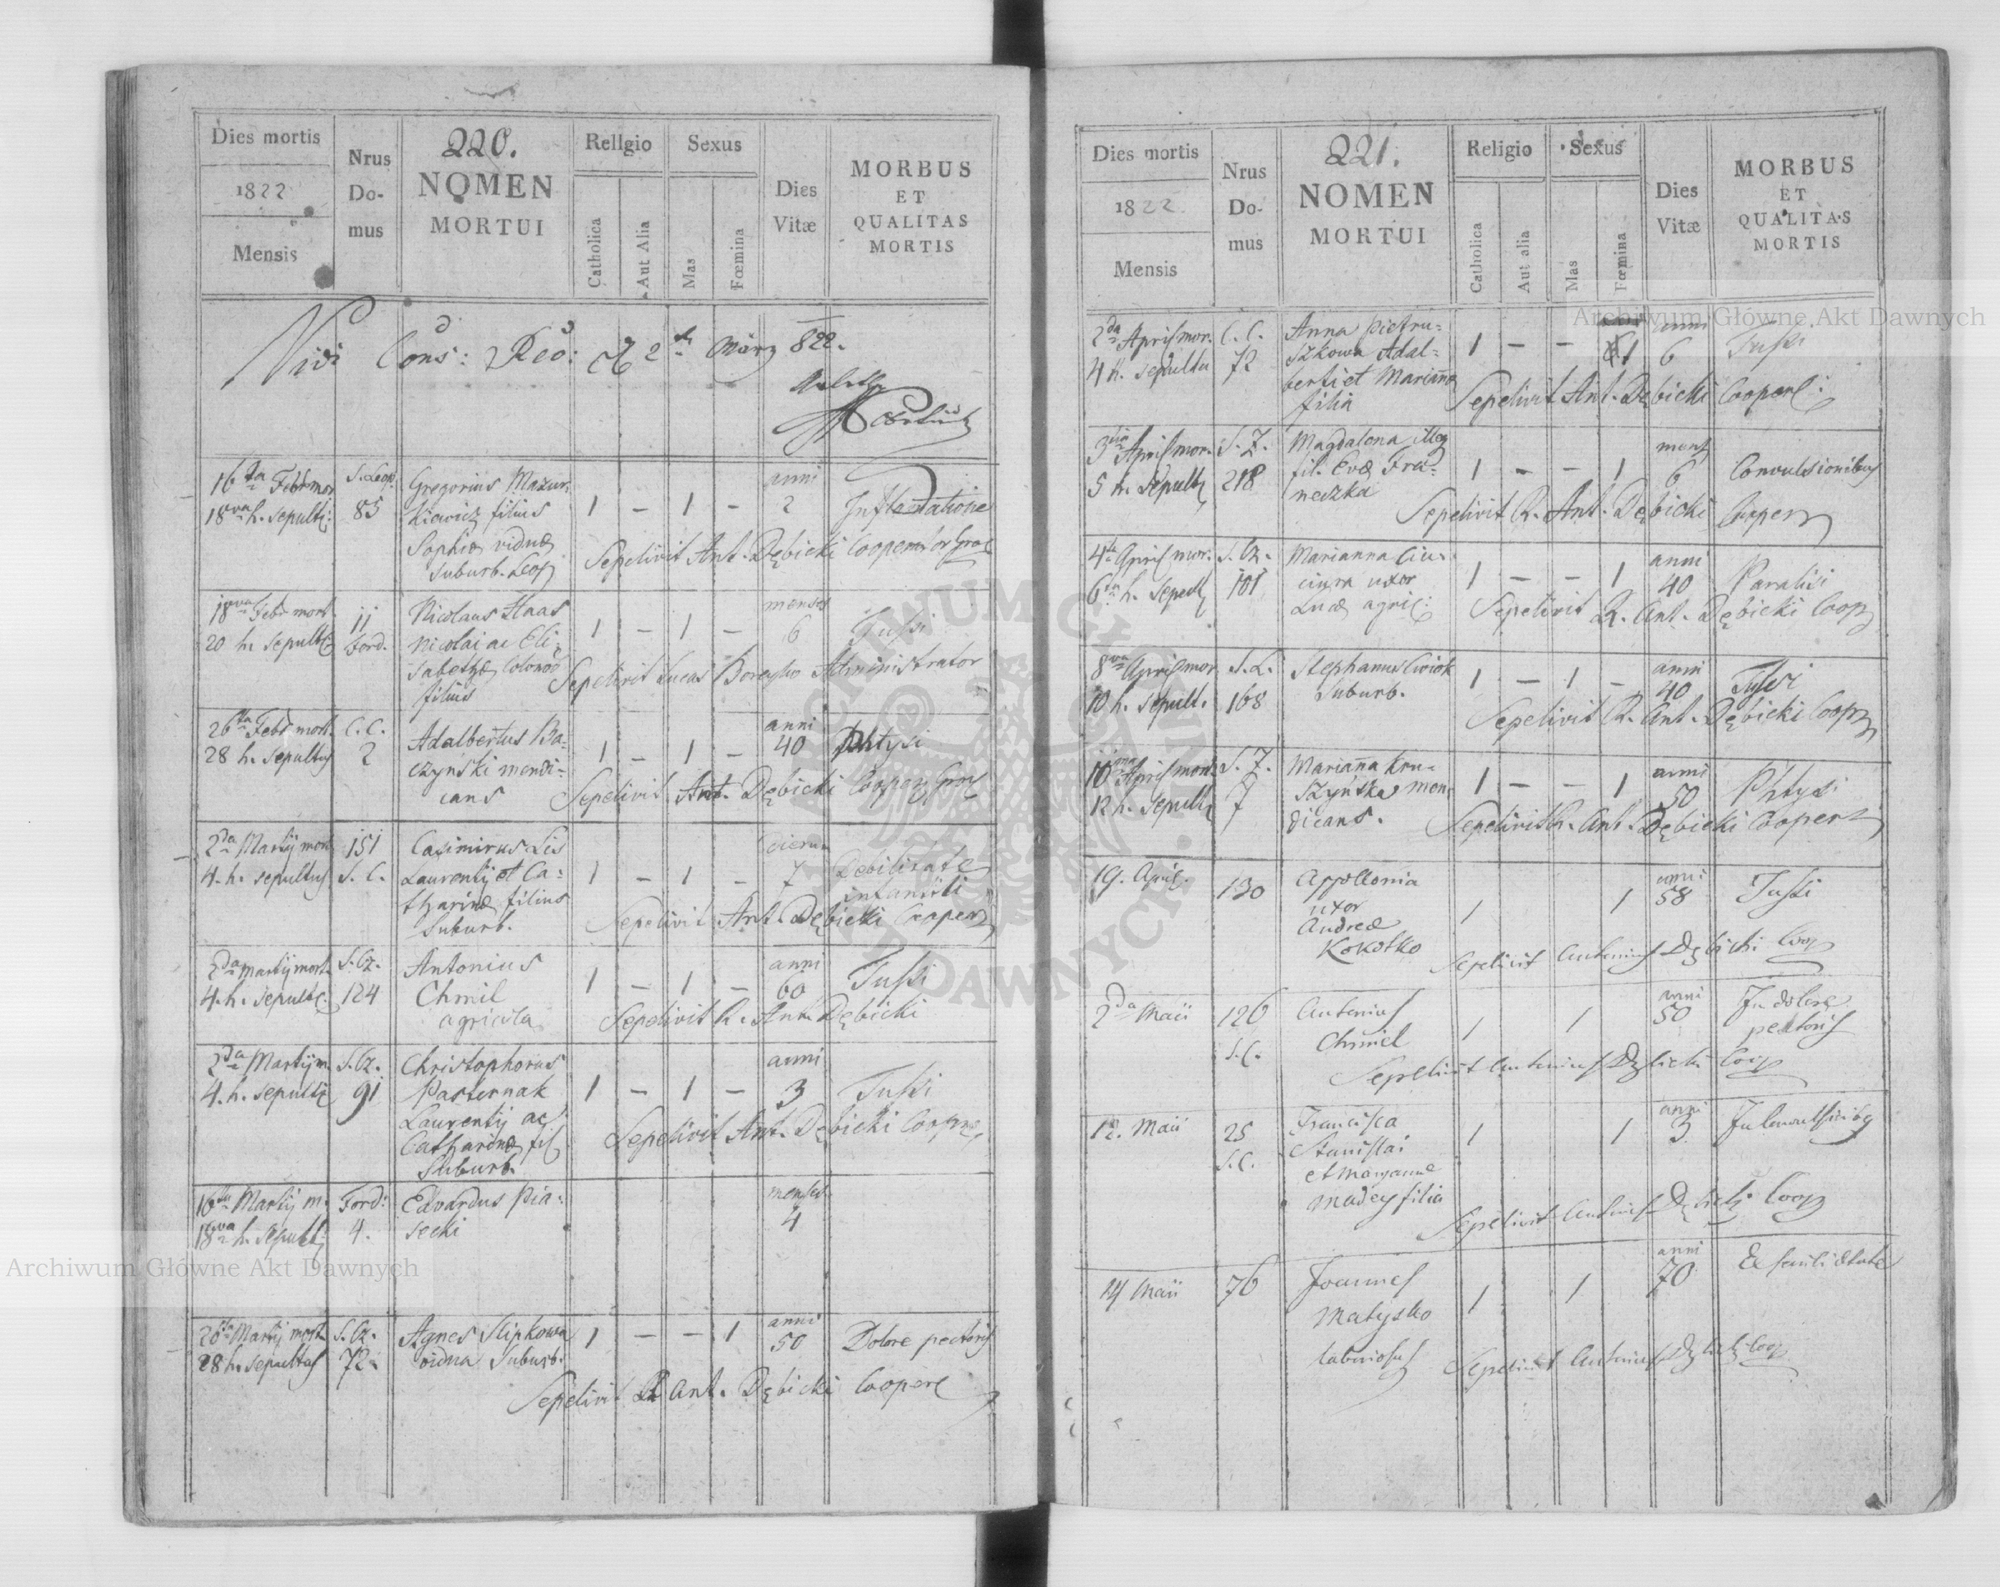 220.
Dies mortis
1822
Mensis
Nrus
Do-
mus
NOMEN
MORTUI
Religio
Catholica
Aut Alia
Sexus
Mas
Fœmina
Dies
Vitæ
MORBUS
ET
QUALITAS
MORTIS
Vidi Cons: 2 März 822.
16ta Febr mor. S. Leop. Gregorius Mazur- anni
18va h. sepult: 85 kiewicz filius 1 – 1 – 2 Inflammatione
Sophiæ viduæ Sepelivit Ant. Dębicki Cooperator
suburb. Leop
18va Febr mort. 11 Nicolaus Haas menses
20 h. sepult Ford. Nicolai ac Eli- 1 – 1 – 6 Tussi
sabethæ colonor Sepelivit Lucas Administrator
filius
26ta Febr mort. C. C. Adalbertus Ba- anni
28 h. sepultus 2 czynski mendi- 1 – 1 – 40 Phtysi
cans Sepelivit Ant. Dębicki Cooper
2da Martij mor. 151 Casimirus Lis dierum
4. h. sepultus S. C. Laurentij et Ca- 1 – 1 – 7 Debilitate
tharinæ filius infantili
suburb. Sepelivit Ant. Dębicki Cooper
2da Martij mort. S. Cz. Antonius anni
4. h. sepult. 124 Chmil 1 – 1 – 60 Tussi
agricola Sepelivit R. Ant. Dębicki
2da Martij m. S. Cz. Christophorus anni
4. h. sepult 91 Pasternak 1 – 1 – 3 Tussi
Laurentij ac Sepelivit Ant. Dębicki Coop
Catharinæ fil
Suburb.
16ta Martij m. Ford: Edvardus Pia- menses
18va h. sepult 4. secki 4
26ta Martij mort. S. Cz. Agnes Slipkowa anni
28 h. sepultus 72 vidua Suburb. 1 – – 1 50 Dolore pectoris
Sepelivit R Ant. Dębicki Cooper
221.
Dies mortis
1822
Mensis
Nrus
Do-
mus
NOMEN
MORTUI
Religio
Catholica
Aut alia
Sexus
Mas
Fœmina
Dies
Vitæ
MORBUS
ET
QUALITAS
MORTIS
2da Apris mor. C. C. Anna Pietru- anni
4 h. sepulta 72 szkowa Adal- 1 – – 1 6 Tussi
berti et Marianna
filia Sepelivit Ant. Dębicki Cooper:
3tia Apris mor. S. 7. Magdalena illeg mens
5 h. sepult 218 fil. Evæ Fra- 1 – – 1 6 Convulsionibus
neczka Sepelivit R. Ant. Dębicki Cooper
4ta Apris mor. S. Cz. Marianna Ciu- anni
6ta h. sepult 101 ciura uxor 1 – – 1 40 Paralisi
Lucæ agric: Sepelivit R. Ant. Dębicki Coop
8va Apris mor S. L. Stephanus Cwiok anni
10 h. sepult. 168 Suburb. 1 – 1 – 40 Tussi
Sepelivit R. Ant. Dębicki Coop
10ma Apris mor. S. 7. Marianna Kru- anni
12 h. sepult 7 szyńska men- 1 – – 1 50 Phtysi
dicans. Sepelivit R. Ant. Dębicki Cooper
19. April. 130 Appollonia anni
uxor 1 1 58 Tussi
Andreæ
Kokotko Sepelivit Antonius Dębicki Coop
2da Maii 126 Antonius anni
S. C. Chmiel 1 1 50 In dolore
pectoris
Sepelivit Antonius Dębicki Coop
12. Maii 25 Francisca anni
S. C. Stanislai 1 1 3
et Maryanne
Madey filia
Sepelivit Antonius Dębicki Coop
14 Maii 76 Joannes anni
Matysko 1 1 70 Ex senili ætate
Sepelivit Antonius Dębicki Coop
Archiwum Główne Akt Dawnych
Archiwum Główne Akt Dawnych
ARCHIWUM GŁÓWNE AKT DAWNYCH